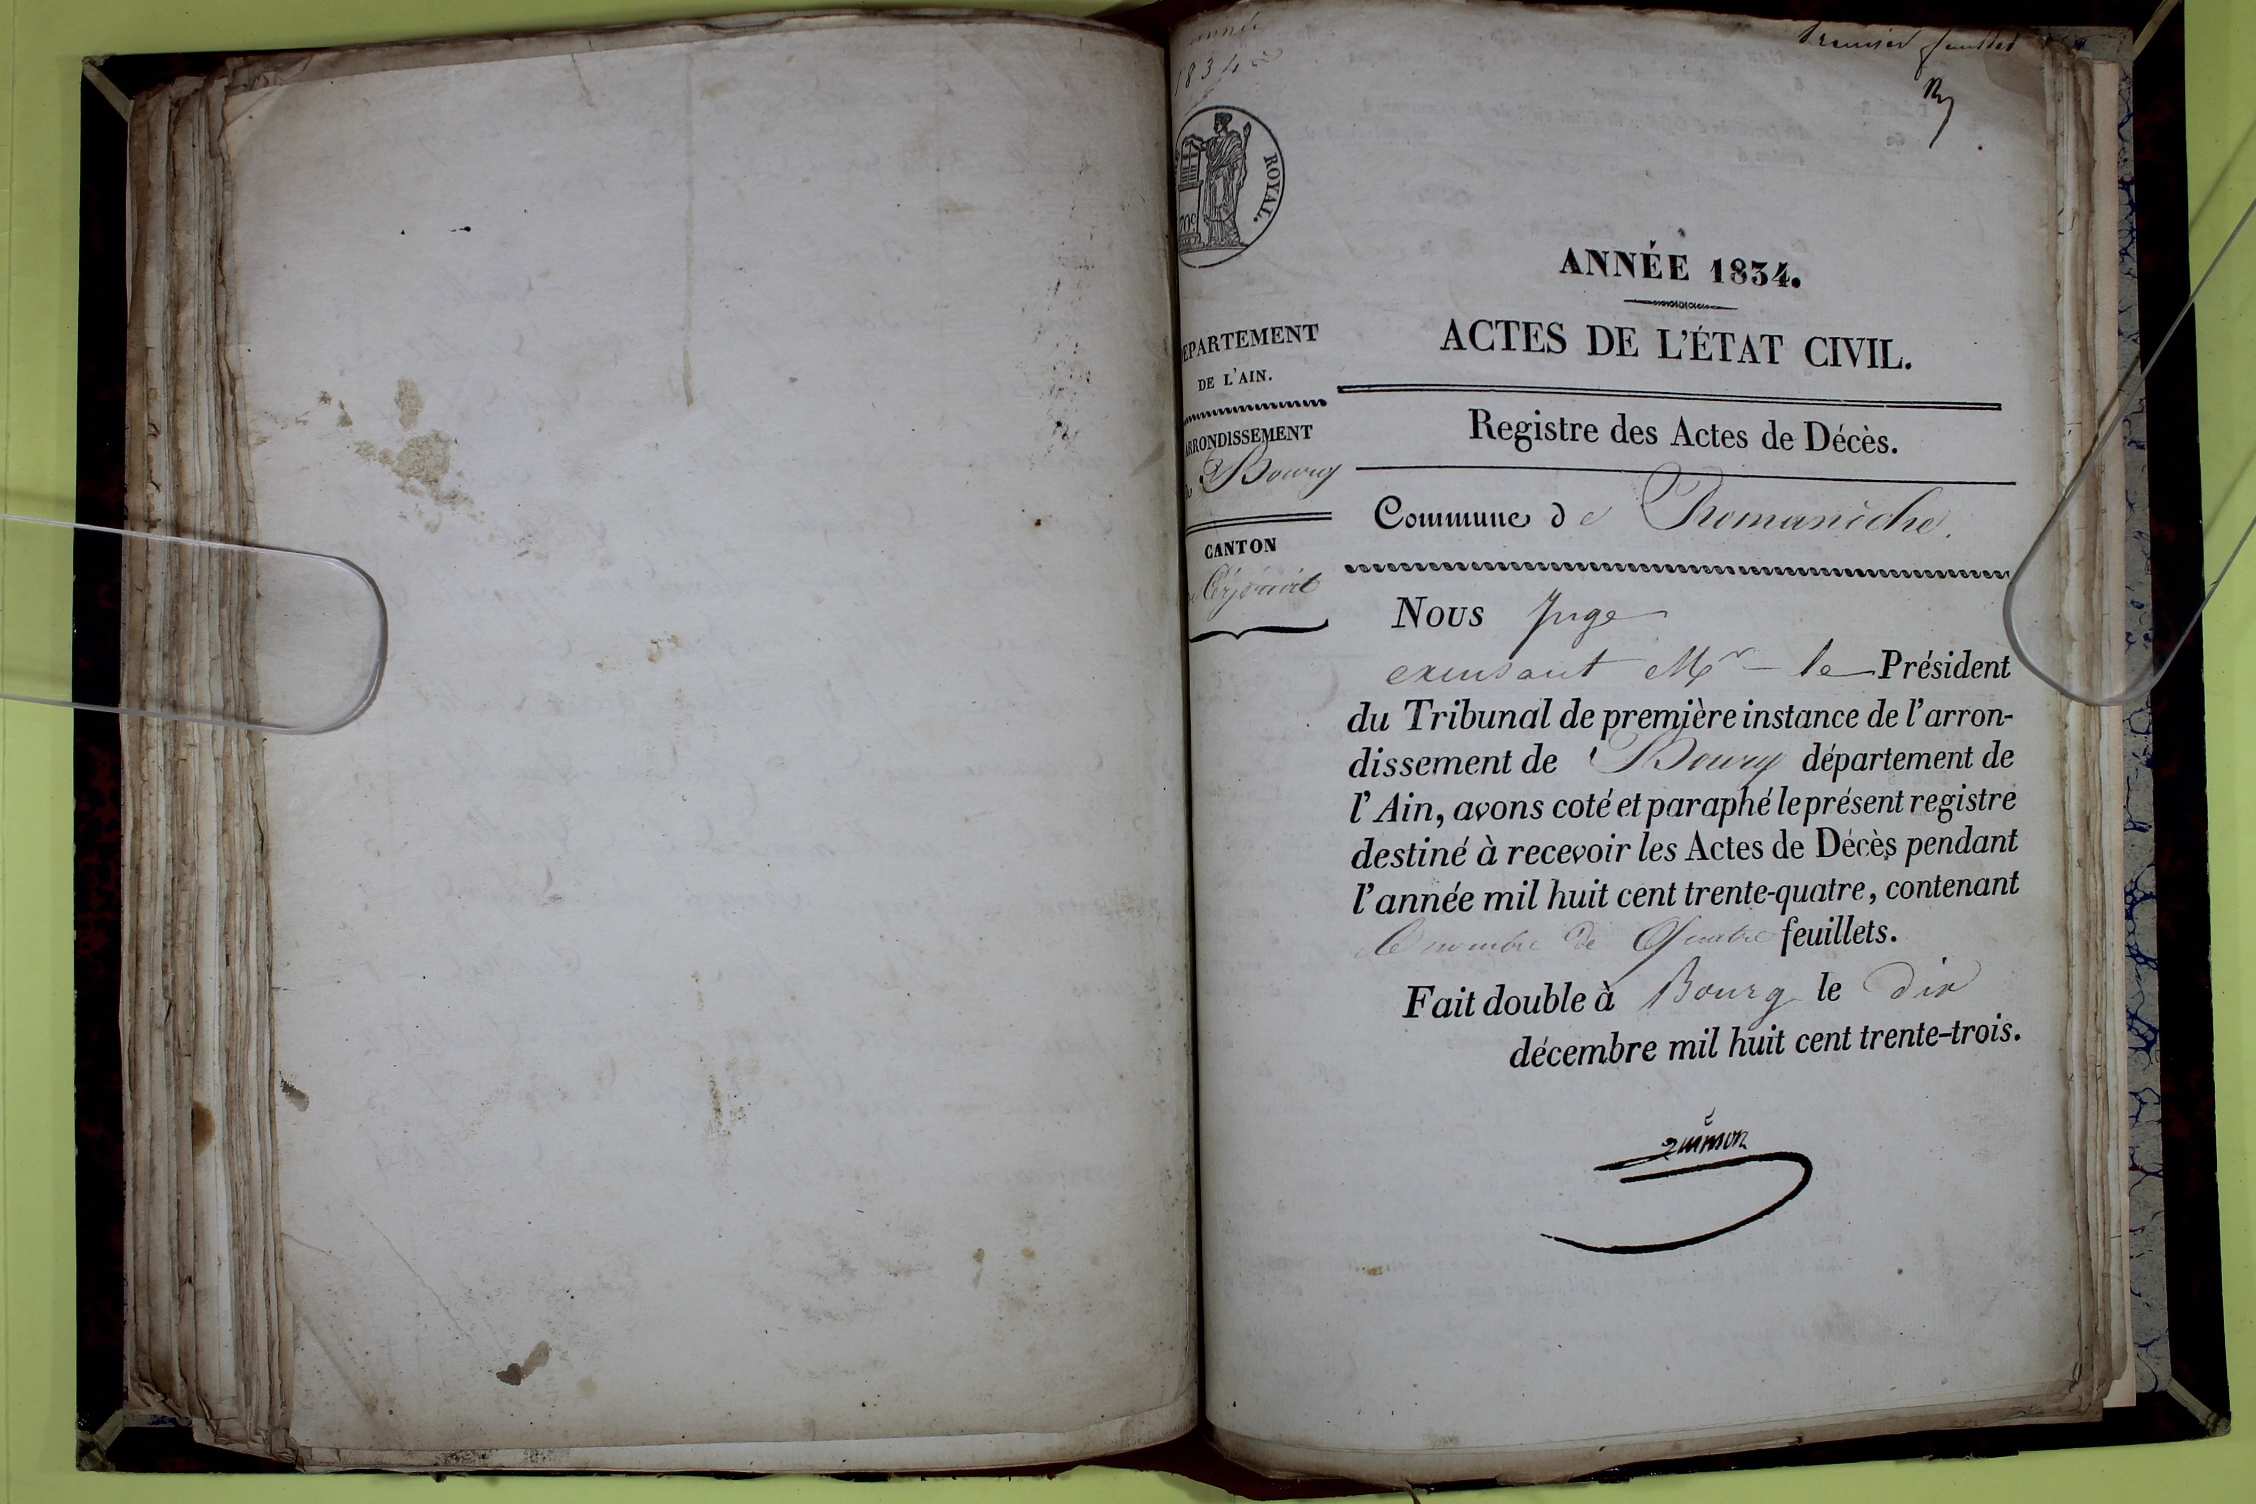 année
1834
premier feuillet
ROYAL.
70c
ANNÉE 1834.
ACTES DE L'ÉTAT CIVIL.
EPARTEMENT
DE L'AIN.
ARRONDISSEMENT
de Bourg
CANTON
Ceyzériat
Registre des Actes de Décès.
Commune de Romanèche.
Nous Juge
exensant Mr le Président
du Tribunal de première instance de l'arron-
dissement de Bourg département de
l'Ain, avons coté et paraphé le présent registre
destiné à recevoir les Actes de Décès pendant
l'année mil huit cent trente-quatre, contenant
le nombre de Quatre feuillets.
Fait double à Bourg le dix
décembre mil huit cent trente-trois.